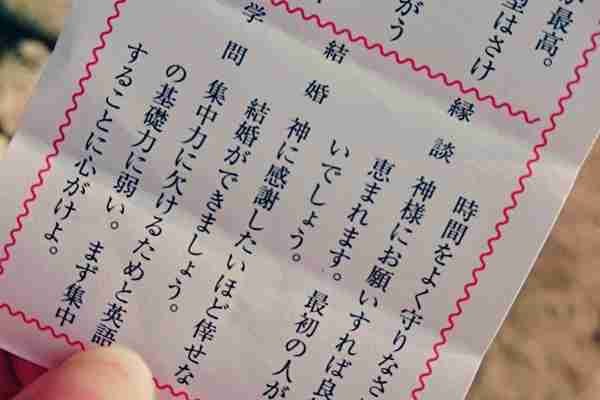 が最高。
望はさけ
がう
時間をよく守りなさ
縁談 神様にお願いすれば良
恵まれます。最初の人が
いでしょう。
結婚 神に感謝したいほど倖せな
結婚ができましょう。
学問 集中力に欠けるためと英語
の基礎力に弱い。まず集中
することに心がけよ。